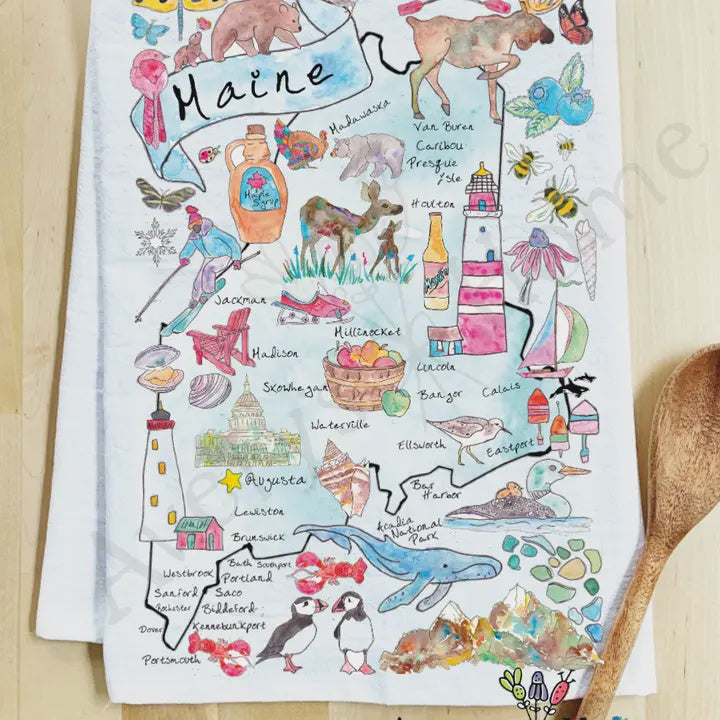 Maine
Madawaska
Van Buren
Caribou
Presque
Isle
Maple
Syrup
Houlton
Jackman
Millinocket
Madison
Lincoln
Skowhegan
Bangor
Calais
Waterville
Ellsworth
Eastport
Augusta
Bar
Harbor
Lewiston
Acadia
National
Park
Brunswick
Bath Southport
Westbrook
Portland
Sanford
Saco
Rochester
Biddeford
Dover
Kennebunkport
Portsmouth